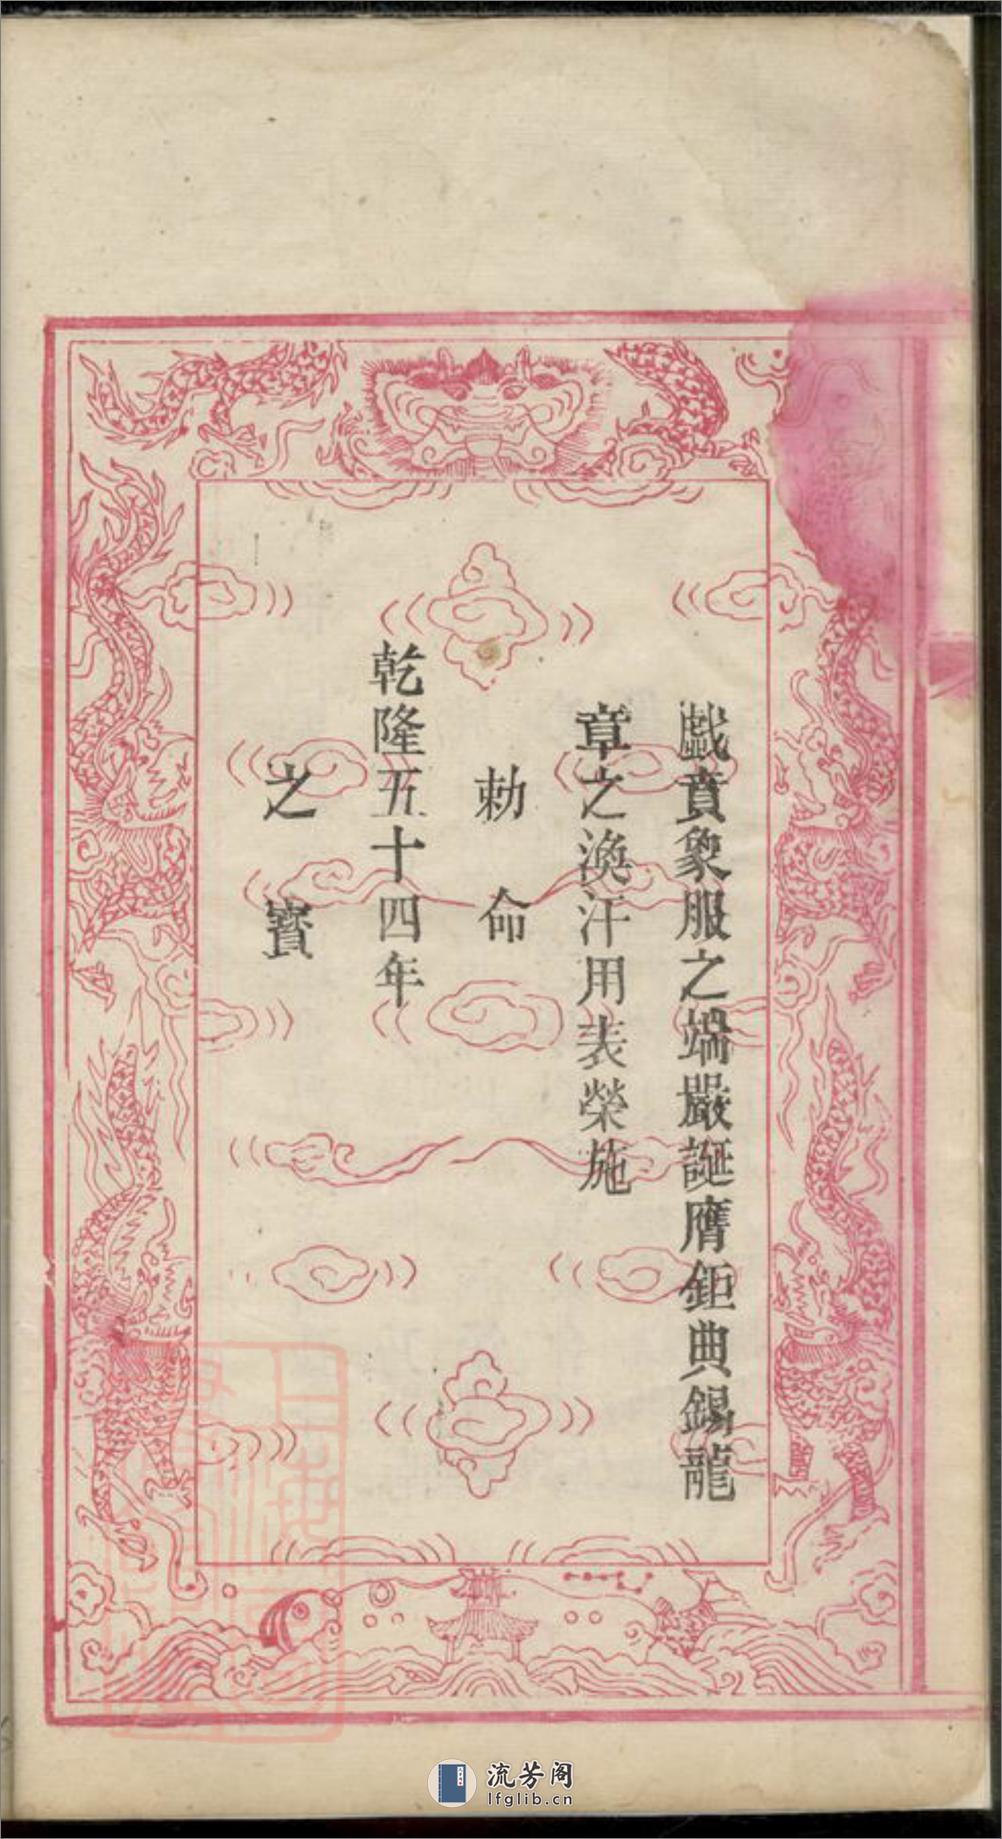 戯賁象服之端嚴誕膺鉅典錫龍
章之渙汗用表榮施
勅命
乾隆五十四年
之寳
流芳阁
lfglib.cn